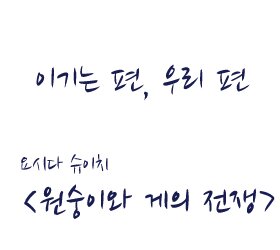 이기는 편, 우리 편
요시다 슈이치
<원숭이와 게의 전쟁>